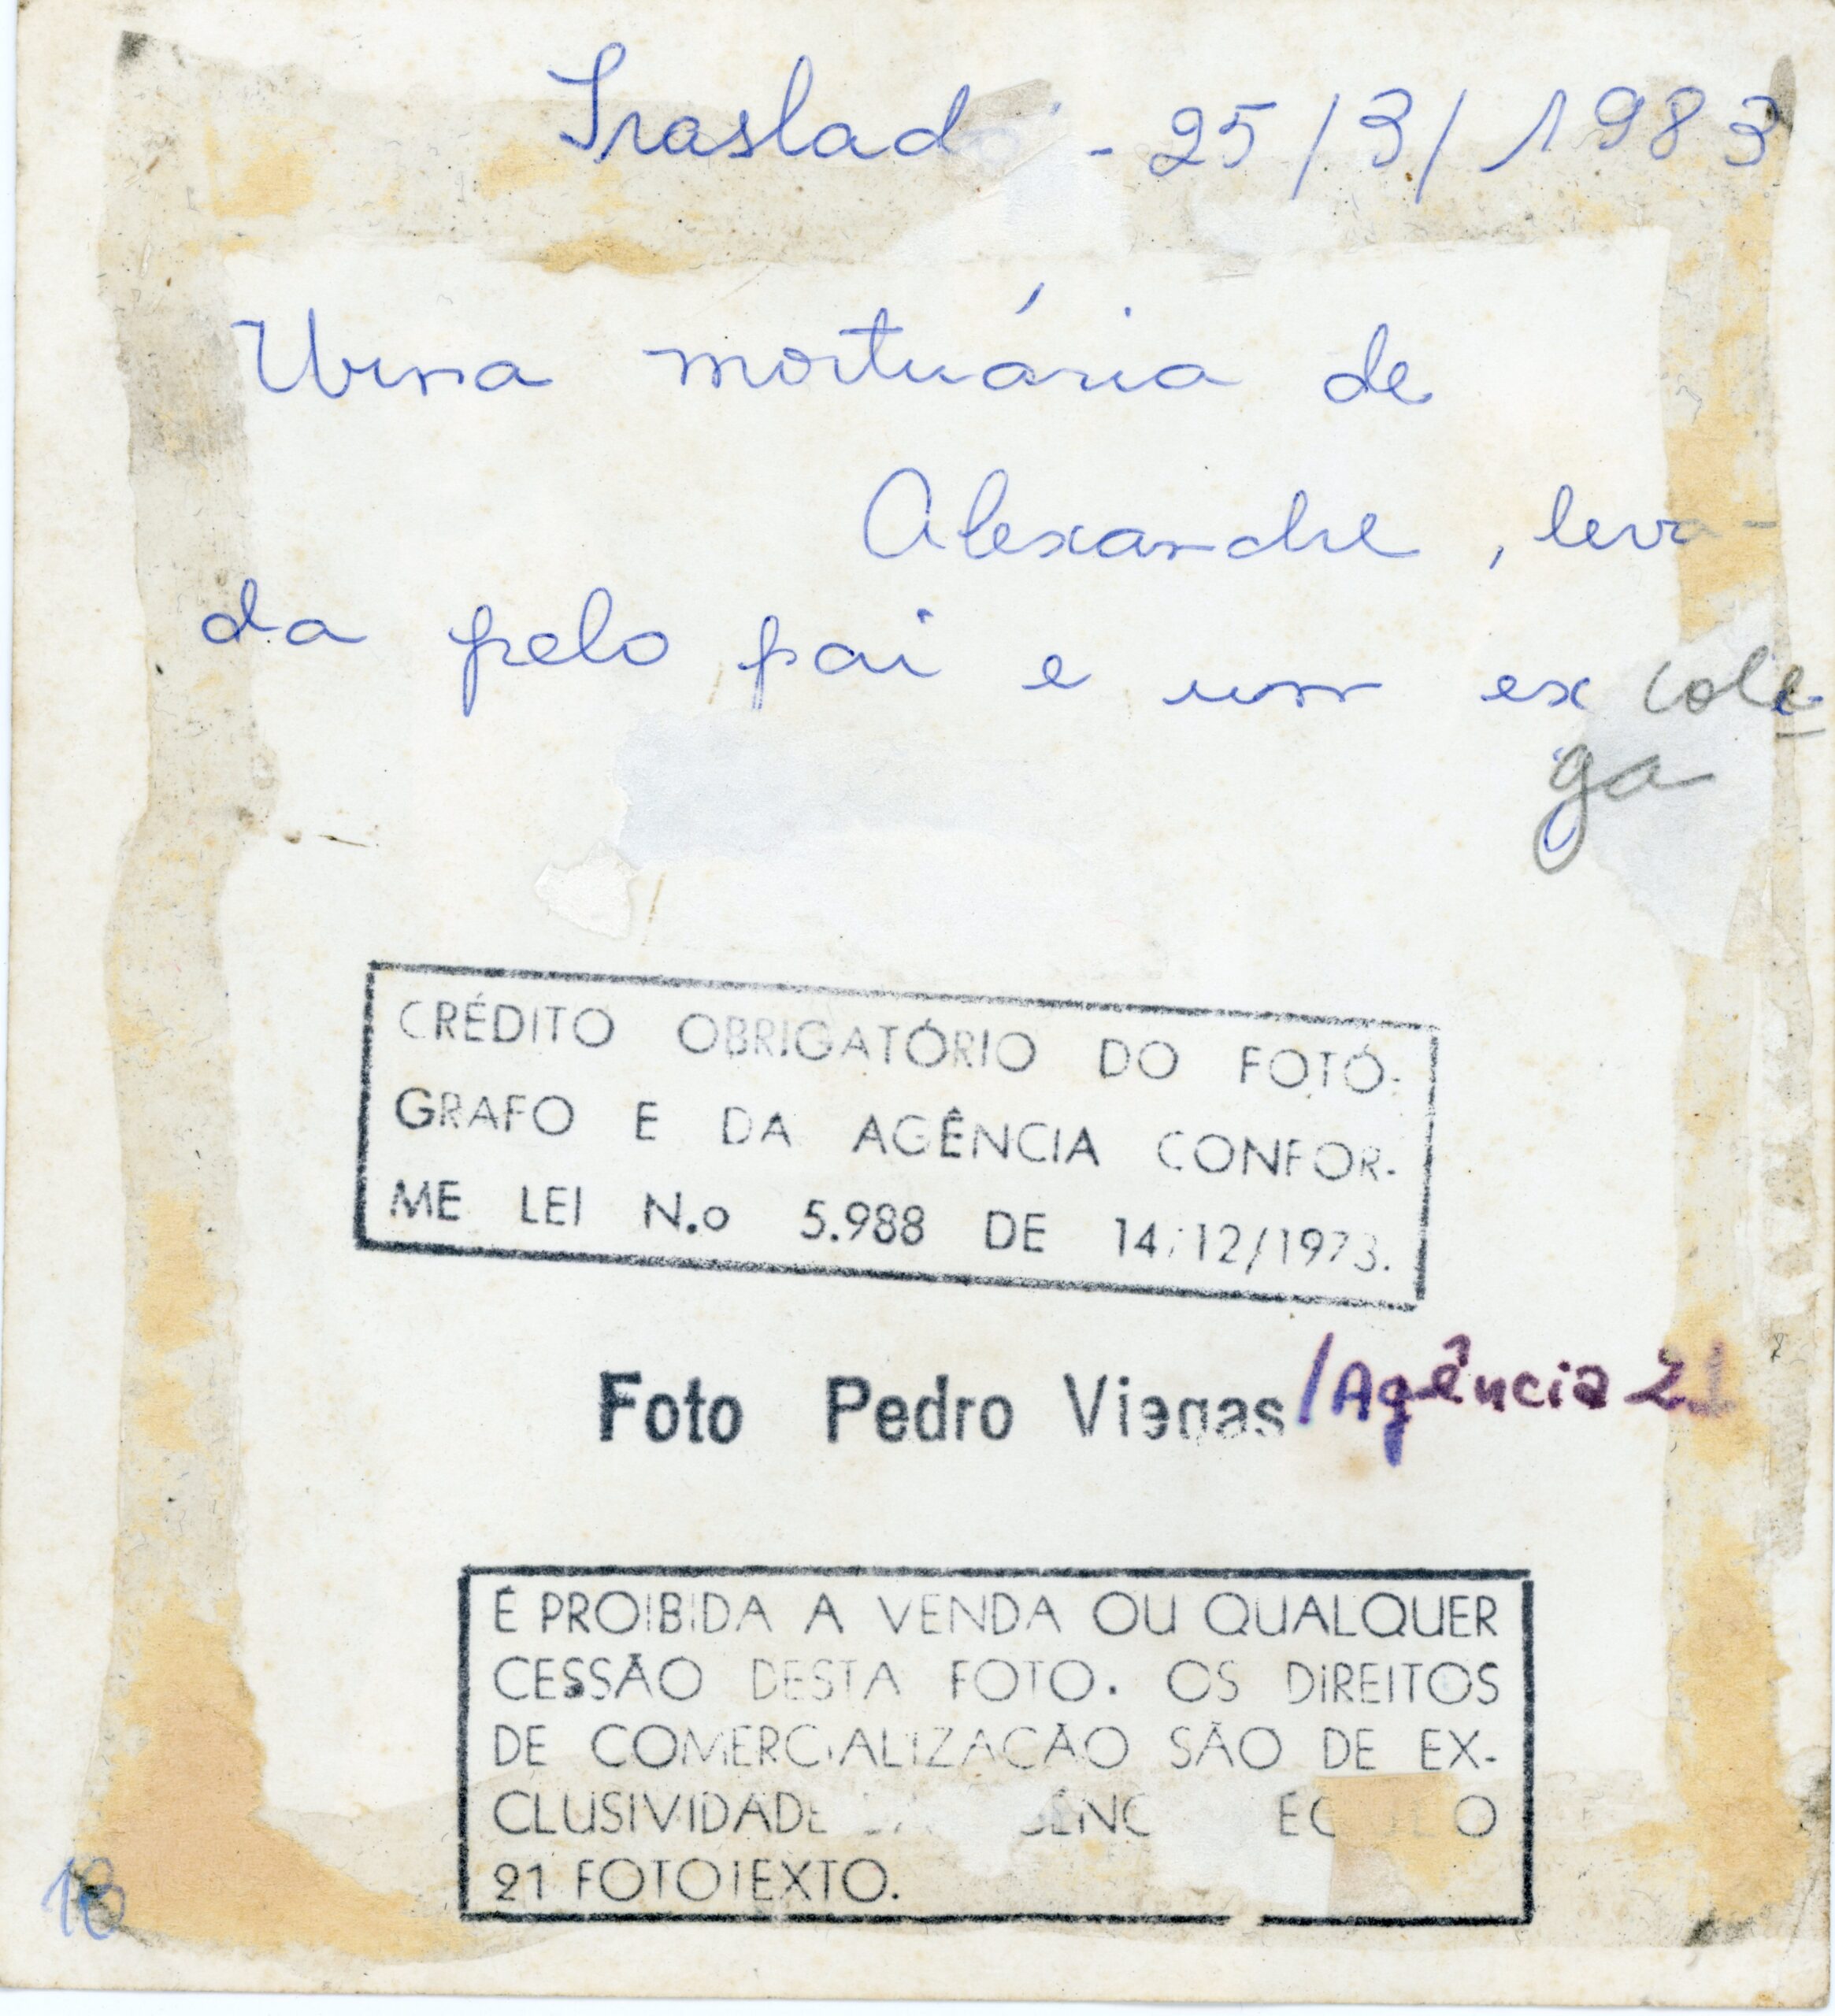 Traslado - 25/3/1983
Urna mortuária de
Alexandre, leva-
da pelo pai e um ex cole-
ga
CRÉDITO OBRIGATÓRIO DO FOTÓ-
GRAFO E DA AGÊNCIA CONFOR-
ME LEI N.o 5.988 DE 14/12/1973.
Foto Pedro Viegas /Agência 21
É PROIBIDA A VENDA OU QUALQUER
CESSÃO DESTA FOTO. OS DIREITOS
DE COMERCIALIZAÇÃO SÃO DE EX-
CLUSIVIDADE
21 FOTOTEXTO.
18